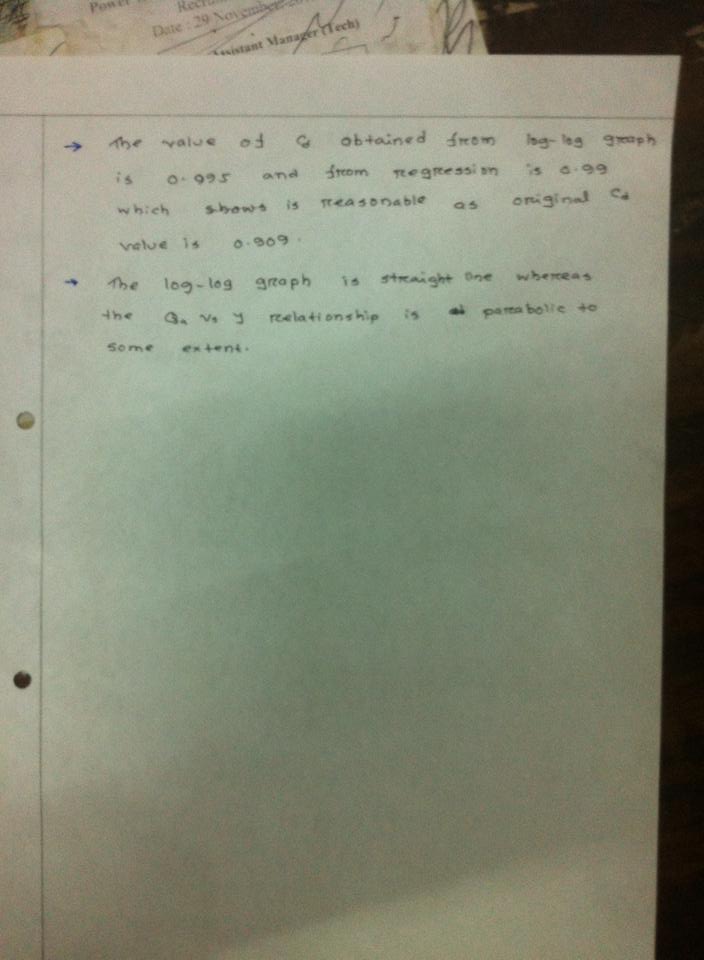 Power
Recru
Date : 29 November
Assistant Manager (Tech)
→ The value of Cd obtained from log-log graph
is 0.995 and from regression is 0.99
which shows is reasonable as original Cd
value is 0.909.
→ The log-log graph is straight one whereas
the Qa vs y reelationship is parabolic to
some extent.